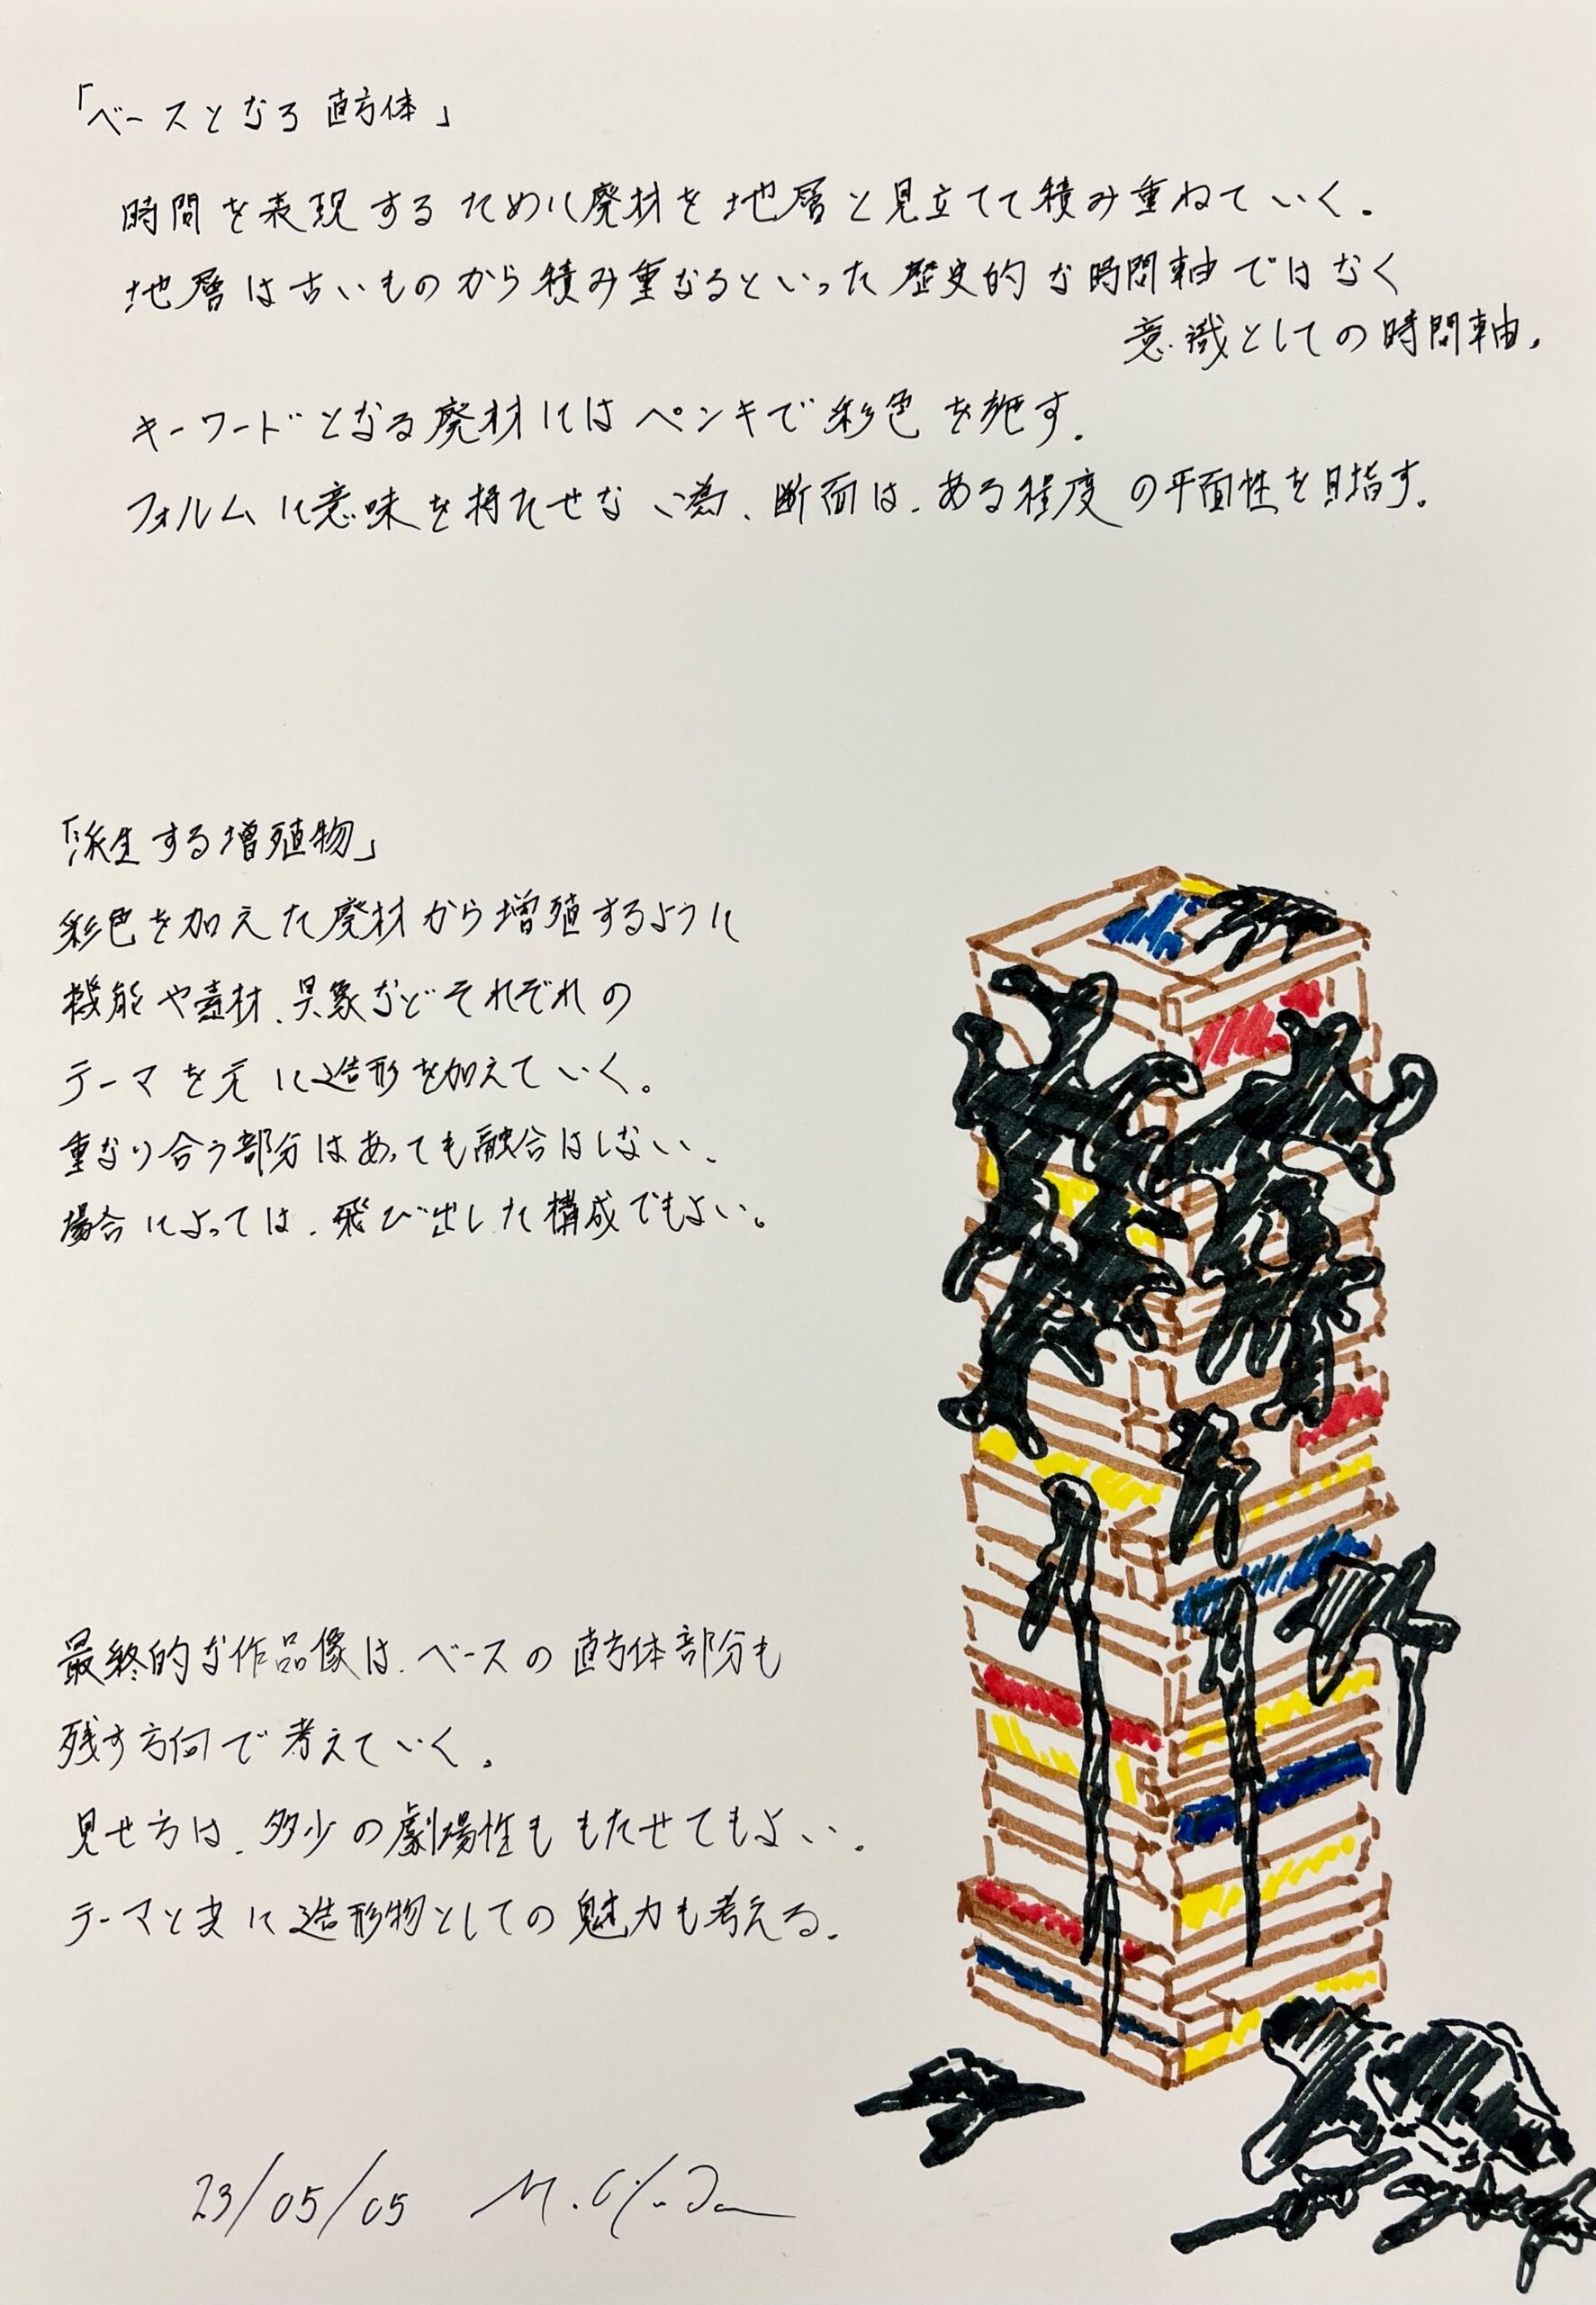 「ベースとなる直方体」
時間を表現するために廃材を地層と見立てて積み重ねていく.
地層は古いものから積み重なるといった歴史的な時間軸ではなく
意識としての時間軸.
キーワードとなる廃材にはペンキで彩色を施す.
フォルムに意味を持たせない為、断面は、ある程度の平面性を目指す.
「派生する増殖物」
彩色を加えた廃材から増殖するように
機能や素材、具象などそれぞれの
テーマを元に造形を加えていく。
重なり合う部分はあっても融合はしない、
場合によっては、飛び出した構成でもよい。
最終的な作品像は、ベースの直方体部分も
残す方向で考えていく.
見せ方は、多少の劇場性ももたせてもよい.
テーマと共に造形物としての魅力も考える.
23/05/05 M.